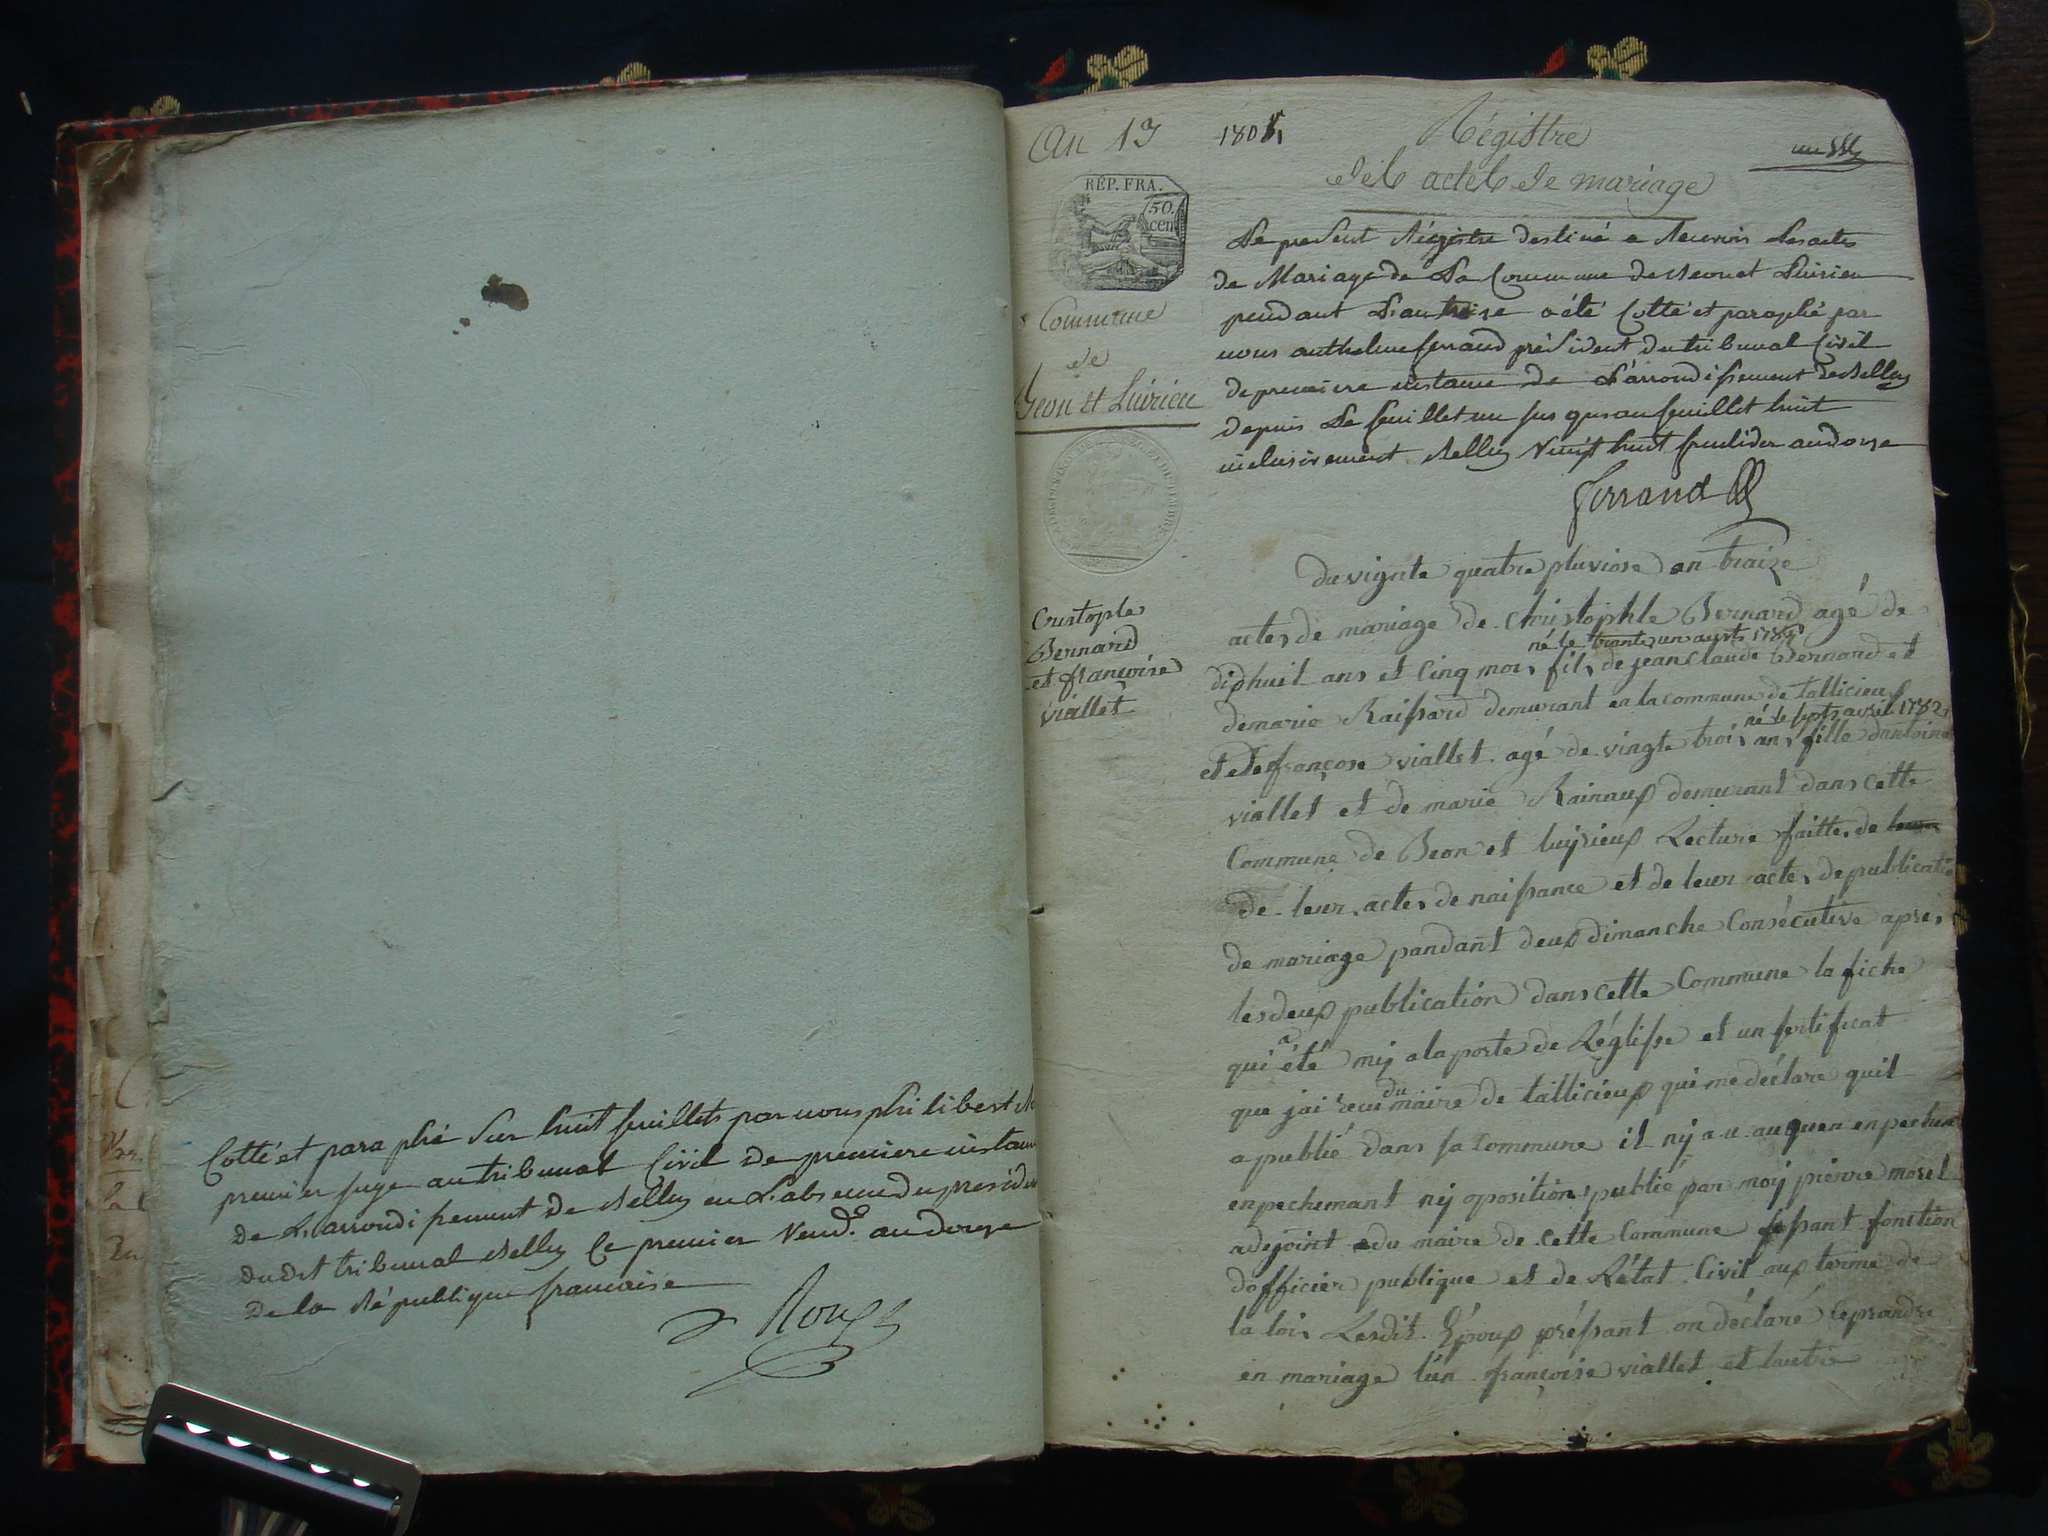 Cotté et paraphé Sur huit feuillets par nous philibert
premier juge au tribunal Civil de premiere instance
de L'arrondissement de Belley en L'absence du président
du dit tribunal Belley Ce premier Vend.e an douze
de la République francaise
Roux
An 13
1805
Régistre
des actes de mariage
un
RÉP. FRA.
50.
cen
Commune
de
Beon et Luirieu
Le present Régistre destiné a Recevoir Les actes
de Mariage de La Commune de Beon et Luirieu
pendant L'an treize a été Cotté et paraphé par
nous anthelme ferrand président du tribunal Civil
de premiere instance de L'arrondissement de Belley
depuis Le feuillet un jus qu'au feuillet huit
inclusivement Belley Vingt huit fructidor an douze
ferrand
Cristophe
Bernard
et françoise
viallet
du vignte quatre pluviose an traize
actes de mariage de christophle Bernard agé de
né le trante un auguste
dixhuit ans et cinq mois fils de jean claude Bernard et
de marie Raissard demurant en la commune de tallicieux
né le sept avril 1782
et de françose viallet agé de vingte trois ans fille dantoine
viallet et de marie Rainaux demurant dans cette
Commune de Beon et luyrieux Lecture faitte de leur
de leur actes de naissance et de leur actes de publicatio
de mariage pandant deux dimanche Consécutive apres
les deux publication dans cette Commune la fiche
qui a été mij a la porte de L'église et un sertificat
que jai recu du maire de tallicieux qui me déclare quil
a publié dans sa Commune il nij a u auquen enpechem
enpechemant nij oposition publié par moij pierre morel
adejoint du maire de cette Commune fesant fonction
dofficier publique et de L'état Civil aux terme de
la loi Lesdit Epoux présant on déclaré ce prandre
en mariage l'un françoise viallet et lautre